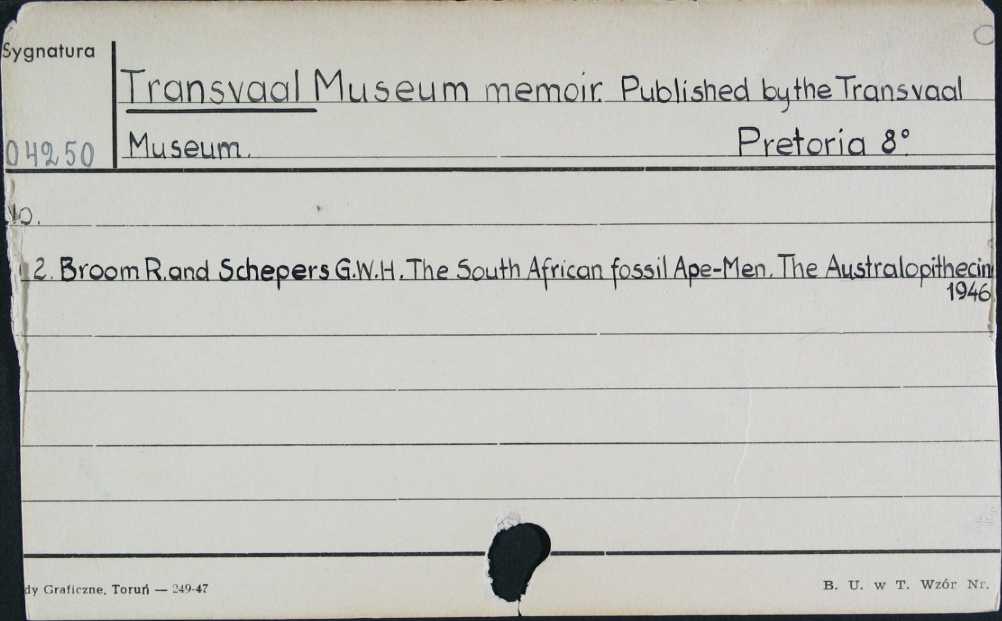 Sygnatura
Transvaal Museum memoir. Published by the Transvaal
04250 Museum. Pretoria 8°
No.
2. Broom R. and Schepers G.W.H. The South African fossil Ape-Men. The Australopithecin
1946
dy Graficzne, Toruń — 249-47 B. U. w T. Wzór Nr.